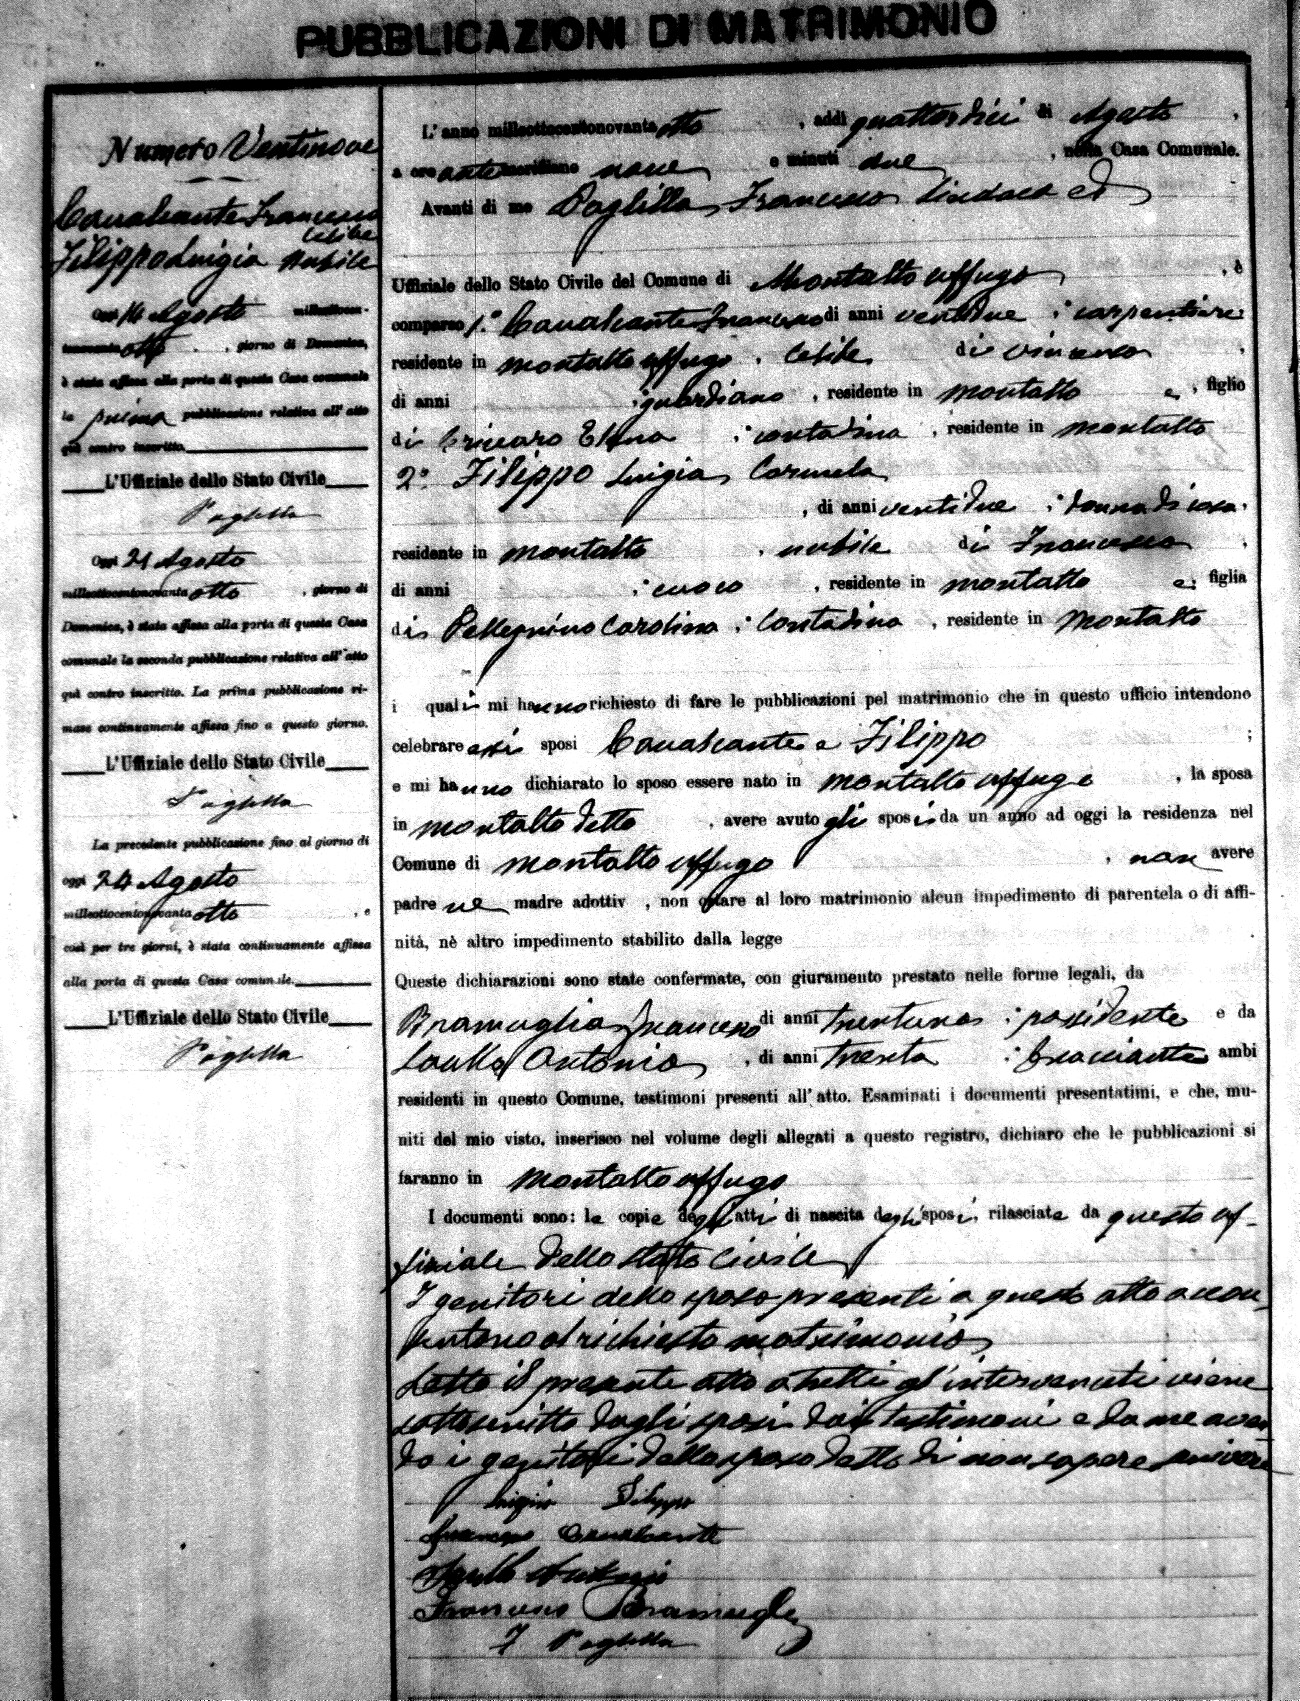 PUBBLICAZIONI DI MATRIMONIO
Numero Ventinove
Cavalcante Francesco
celibe
Filippo Luigia nubile
Oggi 14 Agosto milleottocen-
tonovanta otto , giorno di Domenica,
è stata affissa alla porta di questa Casa comunale
la prima pubblicazione relativa all'atto
quì contro inscritto.
L'Uffiziale dello Stato Civile
Oggi 21 Agosto
milleottocentonovanta otto , giorno di
Domenica, è stata affissa alla porta di questa Casa
comunale la seconda pubblicazione relativa all'atto
quì contro inscritto. La prima pubblicazione ri-
mase continuamente affissa fino a questo giorno.
L'Uffiziale dello Stato Civile
La precedente pubblicazione fino al giorno di
oggi 24 Agosto
milleottocentonovanta otto , e
così per tre giorni, è stata continuamente affissa
alla porta di questa Casa comunale.
L'Uffiziale dello Stato Civile
L'anno milleottocentonovanta otto , addì quattordici di Agosto ,
a ore antemeridiane nove e minuti due , nella Casa Comunale.
Avanti di me Francesco Sindaco ed
Uffiziale dello Stato Civile del Comune di Montalto Uffugo , è
comparso 1.° Cavalcante Francesco di anni ventidue ; carpentiere
residente in Montalto Uffugo , celibe di Vincenzo ,
di anni ; guardiano , residente in Montalto e , figlio
di Elena ; contadina , residente in Montalto
2.° Filippo Luigia Carmela
, di anni ventidue ; donna di casa,
residente in Montalto , nubile di Francesco ,
di anni ; cuoco , residente in Montalto e, figlia
di Pellegrino Carolina ; Contadina , residente in Montalto
i quali mi hanno richiesto di fare le pubblicazioni pel matrimonio che in questo ufficio intendono
celebrare essi sposi Cavalcante e Filippo ;
e mi hanno dichiarato lo sposo essere nato in Montalto Uffugo , la sposa
in Montalto detto , avere avuto gli sposi da un anno ad oggi la residenza nel
Comune di Montalto Uffugo , non avere
padre ne madre adottiv , non ostare al loro matrimonio alcun impedimento di parentela o di affi-
nità, nè altro impedimento stabilito dalla legge
Queste dichiarazioni sono state confermate, con giuramento prestato nelle forme legali, da
Bramuglia Francesco di anni trentuno ; possidente e da
Antonio , di anni trenta ; bracciante ambi
residenti in questo Comune, testimoni presenti all'atto. Esaminati i documenti presentatimi, e che, mu-
niti del mio visto, inserisco nel volume degli allegati a questo registro, dichiaro che le pubblicazioni si
faranno in Montalto Uffugo
I documenti sono: le copie degli atti di nascita degli sposi, rilasciate da questo uf-
fiziale dello stato Civile
I genitori dello sposo presenti a questo atto accon-
sentono al richiesto matrimonio
Letto il presente atto a tutti gl'intervenuti viene
sottoscritto dagli sposi dai testimoni e da me aven-
do i genitori dello sposo detto di non sapere scrivere
Luigia Filippo
Francesco Cavalcante
Francesco Bramuglia